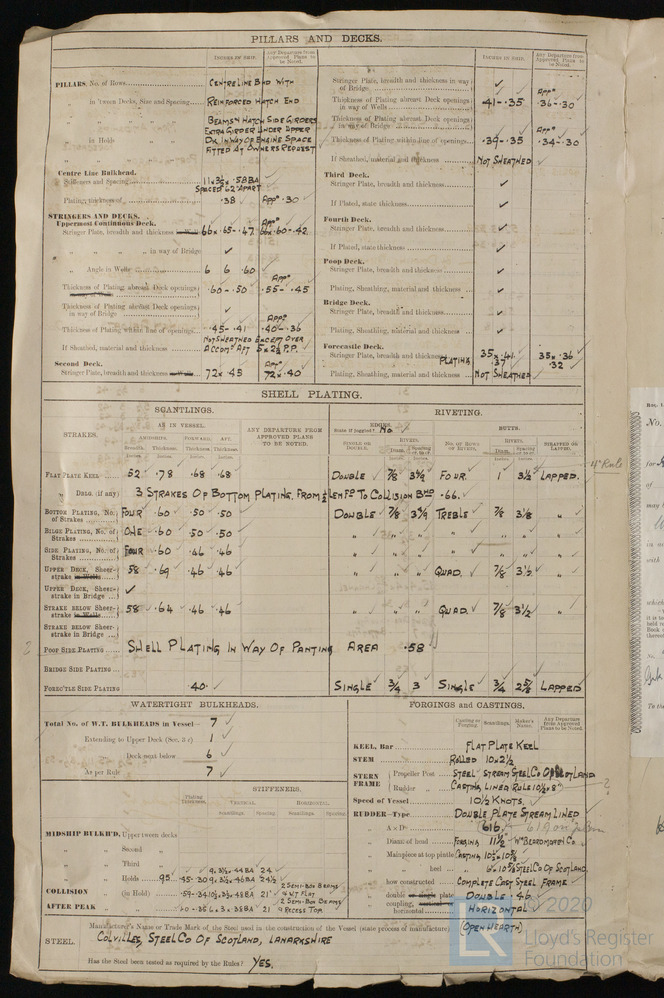 PILLARS AND DECKS.
INCHES IN SHIP.
Any Departure from Approved Plans to be Noted.
PILLARS, No. of Rows
CENTRE LINE BHD WITH
" in 'Tween Decks, Size and Spacing
REINFORCED HATCH END
BEAMS & HATCH SIDE GIRDERS
EXTRA GIRDER UNDER UPPER
" in Holds
DK IN WAY OF ENGINE SPACE
FITTED AT OWNERS REQUEST
Centre Line Bulkhead.
Stiffeners and Spacing
SPACED 62" APART
Plating, thickness of
.38 App .30
STRINGERS AND DECKS.
Uppermost Continuous Deck.
Stringer Plate, breadth and thickness
66 x .65 - .47 66 x .60 - .42
" " " in way of Bridge ✓
" Angle in Wells 6 6 .60
Thickness of Plating abreast Deck openings
.60 - .50 .55 - .45
Thickness of Plating abreast Deck openings in way of Bridge ✓
Thickness of Plating within line of openings
.45 - .41 .40 - .36
If Sheathed, material and thickness
NOT SHEATHED EXCEPT OVER
Second Deck.
Stringer Plate, breadth and thickness
72 x .45 72 x .40
INCHES IN SHIP.
Any Departure from Approved Plans to be Noted.
Stringer Plate, breadth and thickness in way of Bridge ✓
Thickness of Plating abreast Deck openings in way of Wells
.41 - .35 .36 - .30
Thickness of Plating abreast Deck openings in way of Bridge
Thickness of Plating within line of openings
.39 - .35 .34 - .30
If Sheathed, material and thickness NOT SHEATHED
Third Deck.
Stringer Plate, breadth and thickness ✓
If Plated, state thickness ✓
Fourth Deck.
Stringer Plate, breadth and thickness ✓
If Plated, state thickness ✓
Poop Deck.
Stringer Plate, breadth and thickness ✓
Plating, Sheathing, material and thickness ✓
Bridge Deck.
Stringer Plate, breadth and thickness ✓
Plating, Sheathing, material and thickness ✓
Forecastle Deck.
Stringer Plate, breadth and thickness 35 x .41 35 x .36
PLATING .37 .32
Plating, Sheathing, material and thickness NOT SHEATHED
SHELL PLATING.
SCANTLINGS.
RIVETING.
STRAKES.
AS IN VESSEL.
AMIDSHIPS. FORWARD. AFT.
Breadth. Thickness. Thickness. Thickness.
ANY DEPARTURE FROM APPROVED PLANS TO BE NOTED.
EDGES.
State if joggled? No
SINGLE OR DOUBLE.
RIVETS.
Diam.
BUTTS.
No. OF ROWS OF RIVETS.
RIVETS.
Diam.
STRAPPED OR LAPPED.
FLAT PLATE KEEL 52 .78 .68 .68 DOUBLE 7/8 FOUR. 1 3½ LAPPED.
" DBLG. (if any) 3 STRAKES OF BOTTOM PLATING, FROM ¼ LEN FD TO COLLISION BHD .66.
BOTTOM PLATING, No. of Strakes FOUR .60 .50 .50 DOUBLE 7/8 TREBLE 7/8 3 1/8 "
BILGE PLATING, No. of Strakes ONE .60 .50 .50 " " " " " " "
SIDE PLATING, No. of Strakes FOUR .60 .46 .46 " " " " " " "
UPPER DECK, Sheerstrake in Wells 58 .69 .46 .46 " " " QUAD. 7/8 3½ "
UPPER DECK, Sheerstrake in Bridge ✓
STRAKE BELOW Sheerstrake in Wells 58 .64 .46 .46 " " " QUAD. 7/8 3½ "
STRAKE BELOW Sheerstrake in Bridge
POOP SIDE PLATING SHELL PLATING IN WAY OF PANTING AREA .58
BRIDGE SIDE PLATING
FORE'C'TLE SIDE PLATING .40 SINGLE ¾ 3 SINGLE ¾ 2 5/8 LAPPED
WATERTIGHT BULKHEADS.
Total No. of W.T. BULKHEADS in Vessel 7
Extending to Upper Deck 1
Deck next below 6
As per Rule 7
STIFFENERS.
Plating Thickness.
VERTICAL. HORIZONTAL.
Scantlings. Spacing. Scantlings. Spacing.
MIDSHIP BULKH'D, Upper 'tween decks
" " Second "
" " Third "
" " Holds
COLLISION " (in Hold)
AFTER PEAK "
2 SEMI-BOX BEAMS
& WT FLAT
2 SEMI-BOX BEAMS
& RECESS TOP.
FORGINGS and CASTINGS.
Casting or Forging. Scantlings. Maker's Name. Any Departure from Approved Plans to be Noted.
KEEL, Bar FLAT PLATE KEEL
STEM ROLLED 10 x 2½
STERN FRAME Propeller Post STEEL STREAM STEEL CO OF SCOTLAND
Rudder " CASTING LINED RULE 10½ x 8"
Speed of Vessel 10½ KNOTS.
RUDDER—Type DOUBLE PLATE STREAM LINED
A x D 616.
Diam. of head FORGING 11½ Wm BEARDMORE & Co
Mainpiece at top pintle CASTING
" heel STEEL CO OF SCOTLAND.
how constructed COMPLETE CAST STEEL FRAME
double or single plate DOUBLE .46
coupling, vertical or horizontal HORIZONTAL
STEEL.
Manufacturer's Name or Trade Mark of the Steel used in the construction of the Vessel (state process of manufacture) (OPEN HEARTH)
COLVILLES, STEEL CO OF SCOTLAND, LANARKSHIRE
Has the Steel been tested as required by the Rules? YES.
© 2020
Lloyd's Register
Foundation